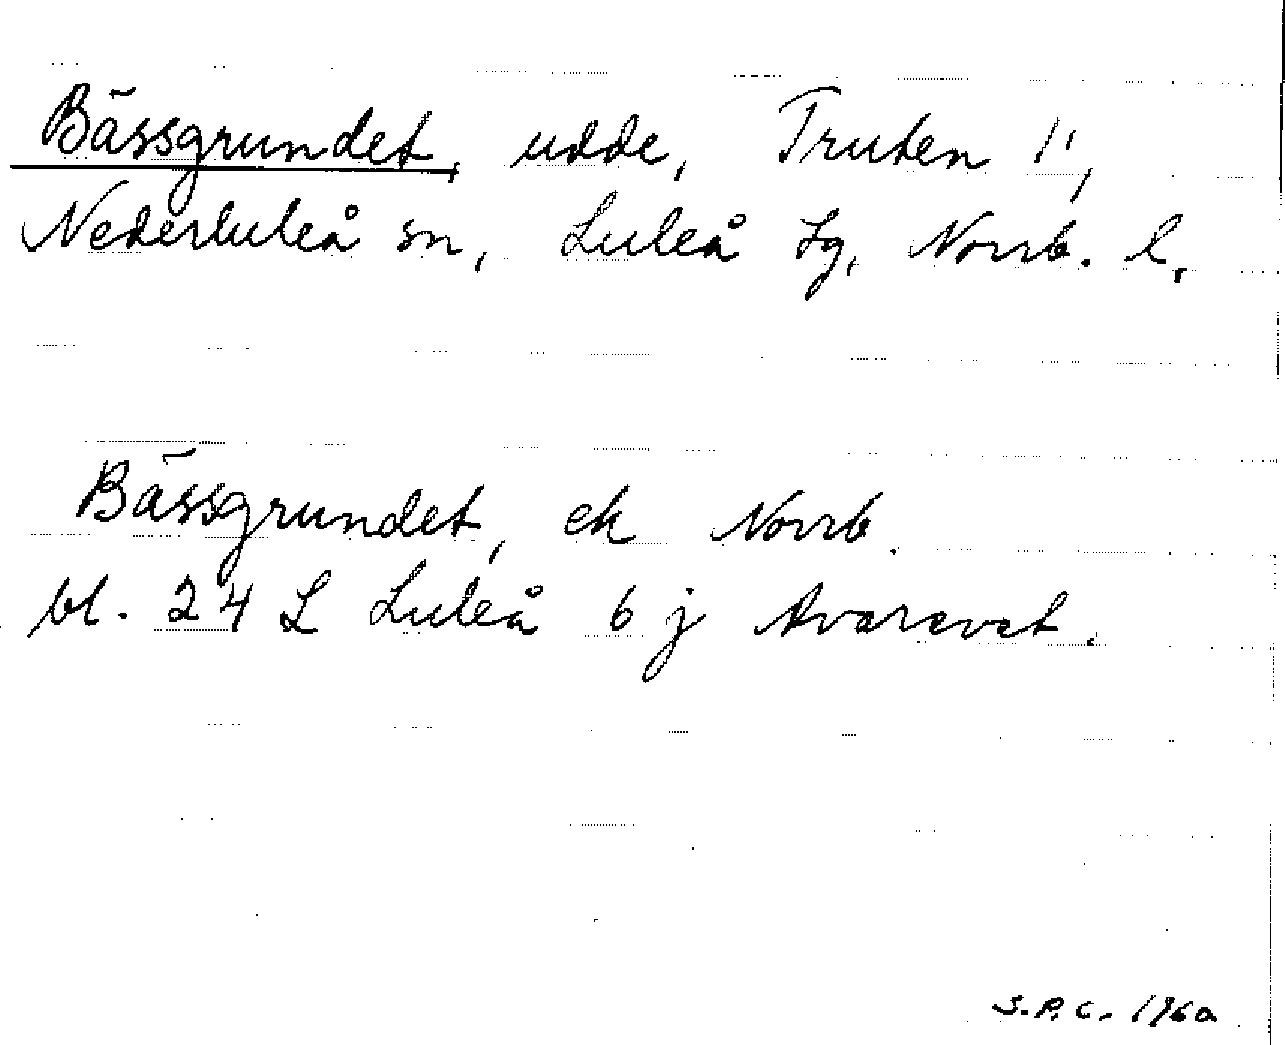 Bässgrundet, udde, Truten 1¹,
Nederluleå sn, Luleå tg, Norrb. l.
Bässgrundet, ek Norrb.
bl. 24 L Luleå 6 j Avaravat.